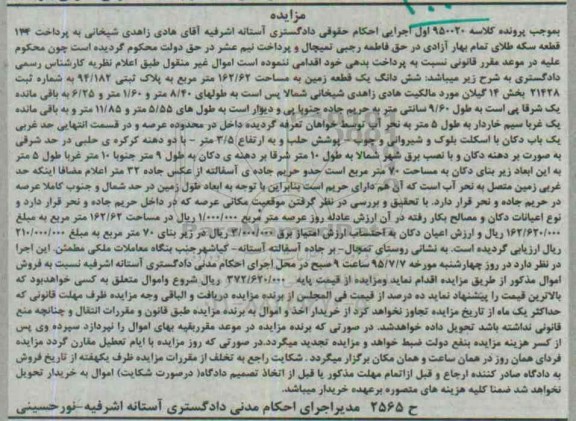 مزایده
بموجب پرونده کلاسه ۹۵۰۰۲۰ اول اجرایی احکام حقوقی دادگستری آستانه اشرفیه آقای هادی زاهدی شیخانی به پرداخت ۱۴۴
قطعه سکه طلای تمام بهار آزادی در حق فاطمه رجبی تمیچال و پرداخت نیم عشر در حق دولت محکوم گردیده است چون محکوم
علیه در موعد مقرر قانونی نسبت به پرداخت بدهی خود اقدامی ننموده است اموال غیر منقول طبق اعلام نظریه کارشناس رسمی
دادگستری به شرح زیر میباشد: شش دانگ یک قطعه زمین به مساحت ۱۶۲/۶۲ متر مربع به پلاک ثبتی ۹۴/۱۸۲ به شماره ثبت
۲۱۴۲۸ بخش ۱۴ گیلان مورد مالکیت هادی زاهدی شیخانی شمالا پس است به طولهای ۸/۴۰ متر و ۱/۶۰ متر و ۶/۲۵ به باقی مانده
یک شرقا پی است به طول ۹/۶۰ سانتی متر به حریم جاده جنوبا پی و دیوار است به طول های ۵/۵۵ متر و ۱۱/۸۵ متر و به باقی مانده
یک غربا سیم خاردار به طول ۵ متر به نحر آب است خواهان تعرفه گردیده داخل در محدوده عرصه و در قسمت انتهایی حد غربی
یک باب دکان با اسکلت بلوک و شیروانی و پوشش حلب و به ارتفاع ۳/۵ متر – با دو دهنه کرکره ی حلبی در حد شرقی
به صورت بر دهنه دکان و با نصب برق شهر شمالا به طول ۱۰ متر شرقا بر دهنه ی دکان به طول ۹ متر جنوبا ۱۰ متر غربا طول ۵ متر
به این ابعاد زیر بنای دکان به مساحت ۷۰ متر مربع است حدو حریم جاده ی آسفالته از عکس جاده ۳۲ متر اعلام مضافا اینکه حد
غربی زمین متصل به نحر آب است که آن هم دارای حریم است بنابراین با توجه به ابعاد طول زمین در حد شمال و جنوب کاملا عرصه
در حریم جاده و نحر قرار دارد. با تحقیق و بررسی در نظر گرفتن موقعیت مکانی عرصه که در داخل حریم جاده و نحر قرار دارد و
نوع اعیانات دکان و مصالح بکار رفته در آن ارزش عادله روز عرصه متر مربع ۱/۰۰۰/۰۰۰ ریال در مساحت ۱۶۲/۶۲ متر مربع به مبلغ
۱۶۲/۶۲۰/۰۰۰ ریال و ارزش اعیان دکان به احتساب ارزش امتیاز برق ۳/۰۰۰/۰۰۰ ریال هر متر زیر بنای ۷۰ متر مربع به مبلغ ۲۱۰/۰۰۰/۰۰۰
ریال ارزیابی گردیده است. به نشانی روستای تمچال– بر جاده آسفالته آستانه– کیاشهرجنب بنگاه معاملات ملکی مطمئن. این اجرا
در نظر دارد در روز چهارشنبه مورخه ۹۵/۷/۷ ساعت ۹ صبح در محل اجرای احکام مدنی دادگستری آستانه اشرفیه نسبت به فروش
اموال مذکور از طریق مزایده اقدام نماید ومزایده از قیمت پایه ۳۷۲/۶۲۰/۰۰۰ ریال شروع واموال متعلق به کسی خواهدبود که
بالاترین قیمت را پیشنهاد نماید ده درصد از قیمت فی المجلس از برنده مزایده دریافت و الباقی وجه مزایده ظرف مهلت قانونی که
حداکثر یک ماه از تاریخ مزایده تجاوز نخواهد کرد از خریدار اخذ و اموال به برنده مزایده طبق قانون و مقررات انتقال و چنانچه منع
قانونی نداشته باشد تحویل داده خواهدشد. در صورتی که برنده مزایده در موعد مقرربقیه بهای اموال را نپردازد سپرده وی پس
از کسر هزینه مزایده بنفع دولت ضبط خواهد و مزایده تجدید میگردد.در صورتی که روز مزایده با ایام تعطیل مقارن گردد مزایده
فردای همان روز در همان ساعت و همان مکان برگزار میگردد . شکایت راجع به تخلف از مقررات مزایده ظرف یکهفته از تاریخ فروش
به دادگاه صادر کننده ارجاع و قبل ازاتمام مهلت مذکور یا قبل از اتخاذ تصمیم دادگاه( درصورت شکایت) اموال به خریدار تحویل
نخواهد شد ضمنا کلیه هزینه های متصوره برعهده خریدار میباشد.
ح ۲۵۶۵ مدیراجرای احکام مدنی دادگستری آستانه اشرفیه–نورحسینی